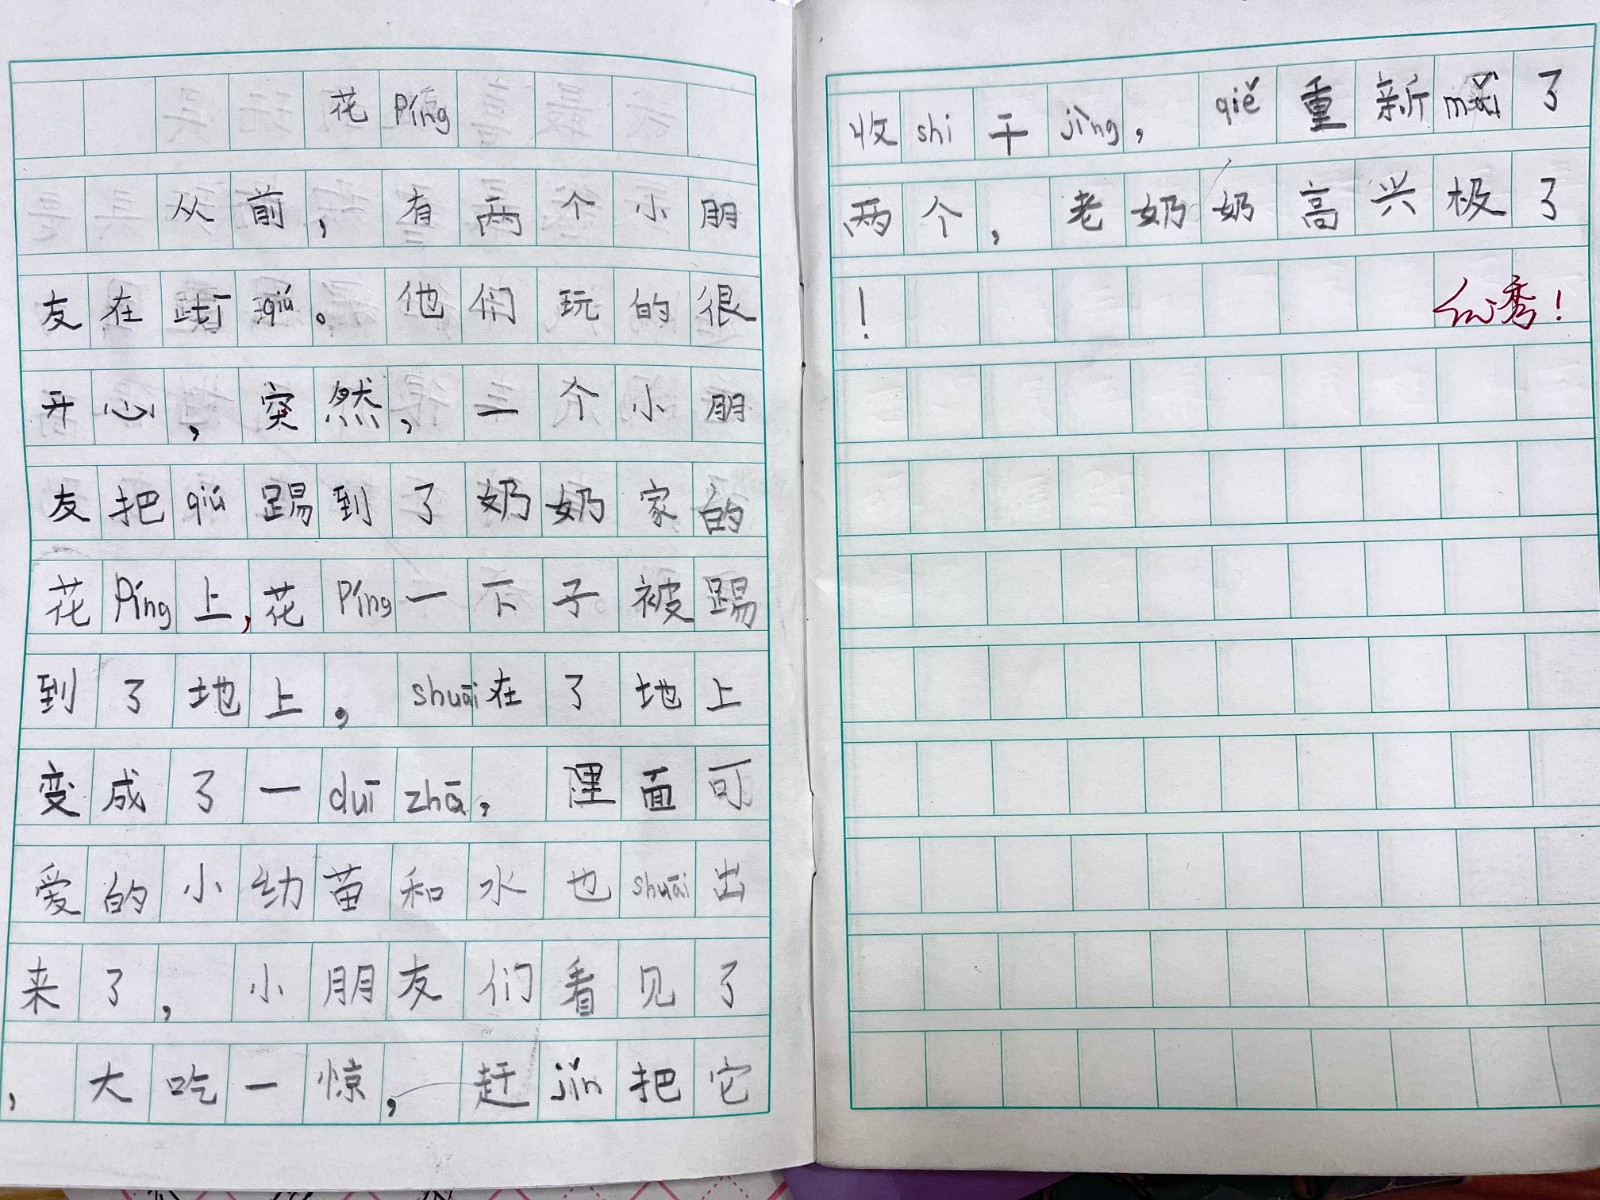 花 Píng
从前，有两个小朋
友在 qiú。他们玩的很
开心，突然，三个小朋
友把 qiú 踢到了奶奶家的
花 Píng 上，花 Píng 一下子被踢
到了地上，shuāi 在了地上
变成了一 duī zhā，里面可
爱的小幼苗和水也 shuāi 出
来了，小朋友们看见了
，大吃一惊，赶 jǐn 把它
收 shi 干 jìng，qiě 重新 mǎi 了
两个，老奶奶高兴极了
！
优秀！